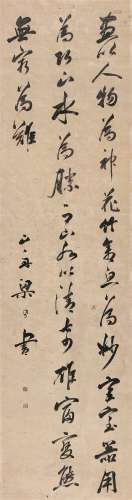 畫以人物為神花竹禽魚為妙宮室器用
為巧山水為勝而山水以清奇雄富變態
無窮為難
山舟梁同書